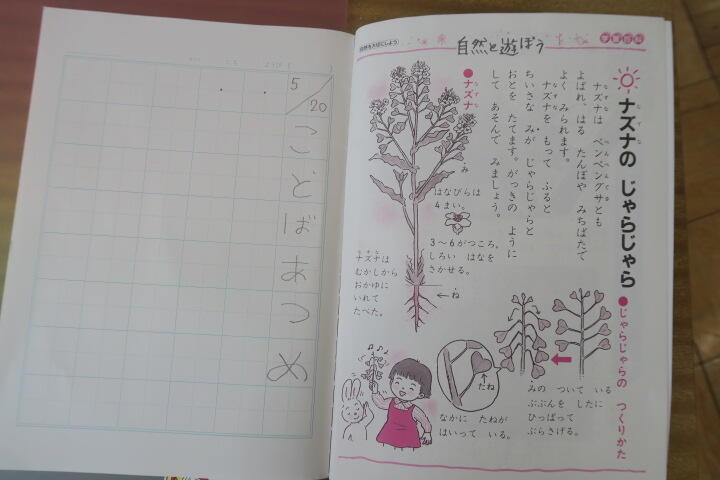 5/20
ことばあつめ
自然を大切にしよう
自然と遊ぼう
学習百科
ナズナの じゃらじゃら
ナズナは ペンペングサとも
よばれ、はる たんぼや みちばたで
よく みられます。
ナズナを もって ふると
ちいさな みが じゃらじゃらと
おとを たてます。がっきの ように
して あそんで みましょう。
●ナズナ
み
はなびらは
4まい。
3〜6がつころ、
しろい はなを
さかせる。
ナズナは
むかしから
おかゆに
いれて
たべた。
ね
●じゃらじゃらの つくりかた
みの ついて いる
ぶぶんを したに
ひっぱって
ぶらさげる。
たね
なかに たねが
はいって いる。